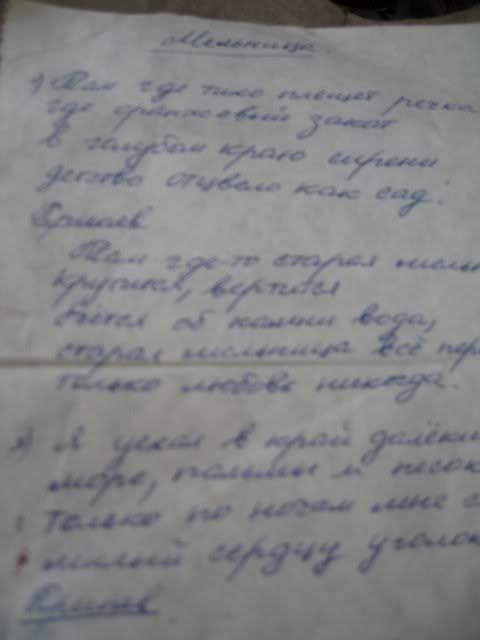 Мельница
1) Там где тихо плещет речка
где оранжовый закат
В голубом краю сирени
детство отцвело как сад.
Припев
Там где-то старая
крутится, вертится
бьётся об камни вода,
старая мельница всё
только любовь никогда.
2) Я уехал в край
море, пальмы и песок
Только по ночам мне
милый сердцу уголок
Припев